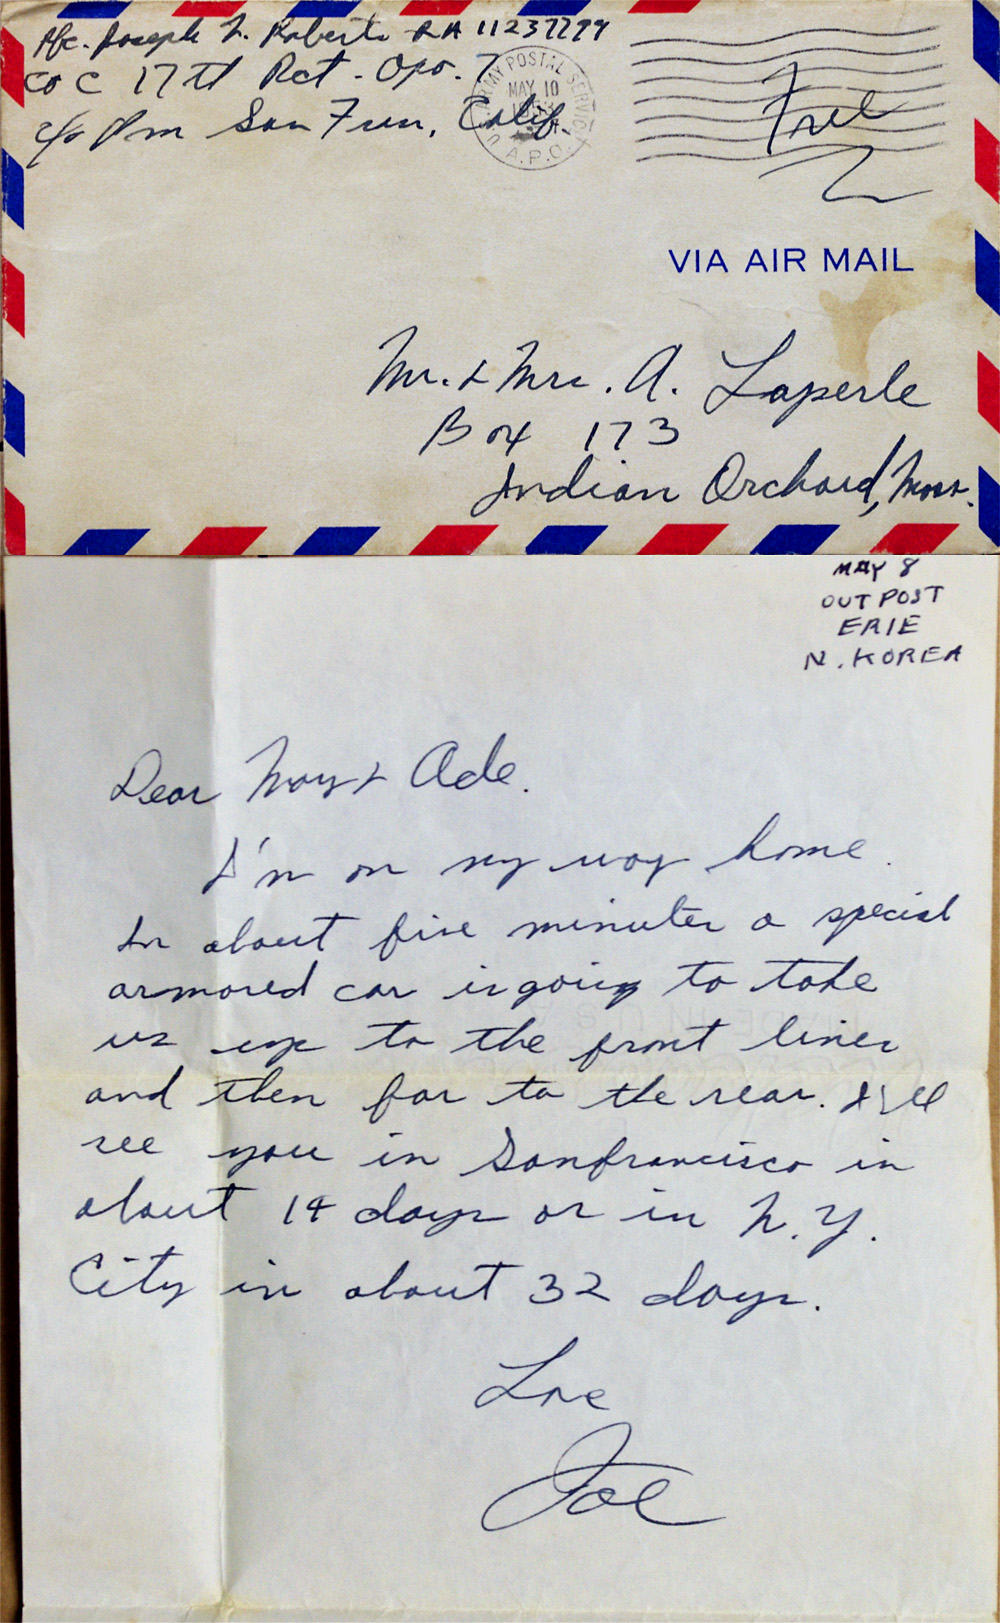 Pfc. Joseph N. Roberts RA 11237299
Co C 17th Rct - Apo. 7
c/o Pm San Fran, Calif.
ARMY POSTAL SERVICE
MAY 10
1953
A.P.O.
Free
VIA AIR MAIL
Mr. + Mrs. A. Laperle
Box 173
Indian Orchard, Mass.
MAY 8
OUT POST
ERIE
N. KOREA
Dear May + Ade.
I'm on my way home.
In about five minutes a special
armored car is going to take
us up to the front lines
and then far to the rear. I'll
see you in Sanfrancisco in
about 14 days or in N.Y.
City in about 32 days.
Love
Joe